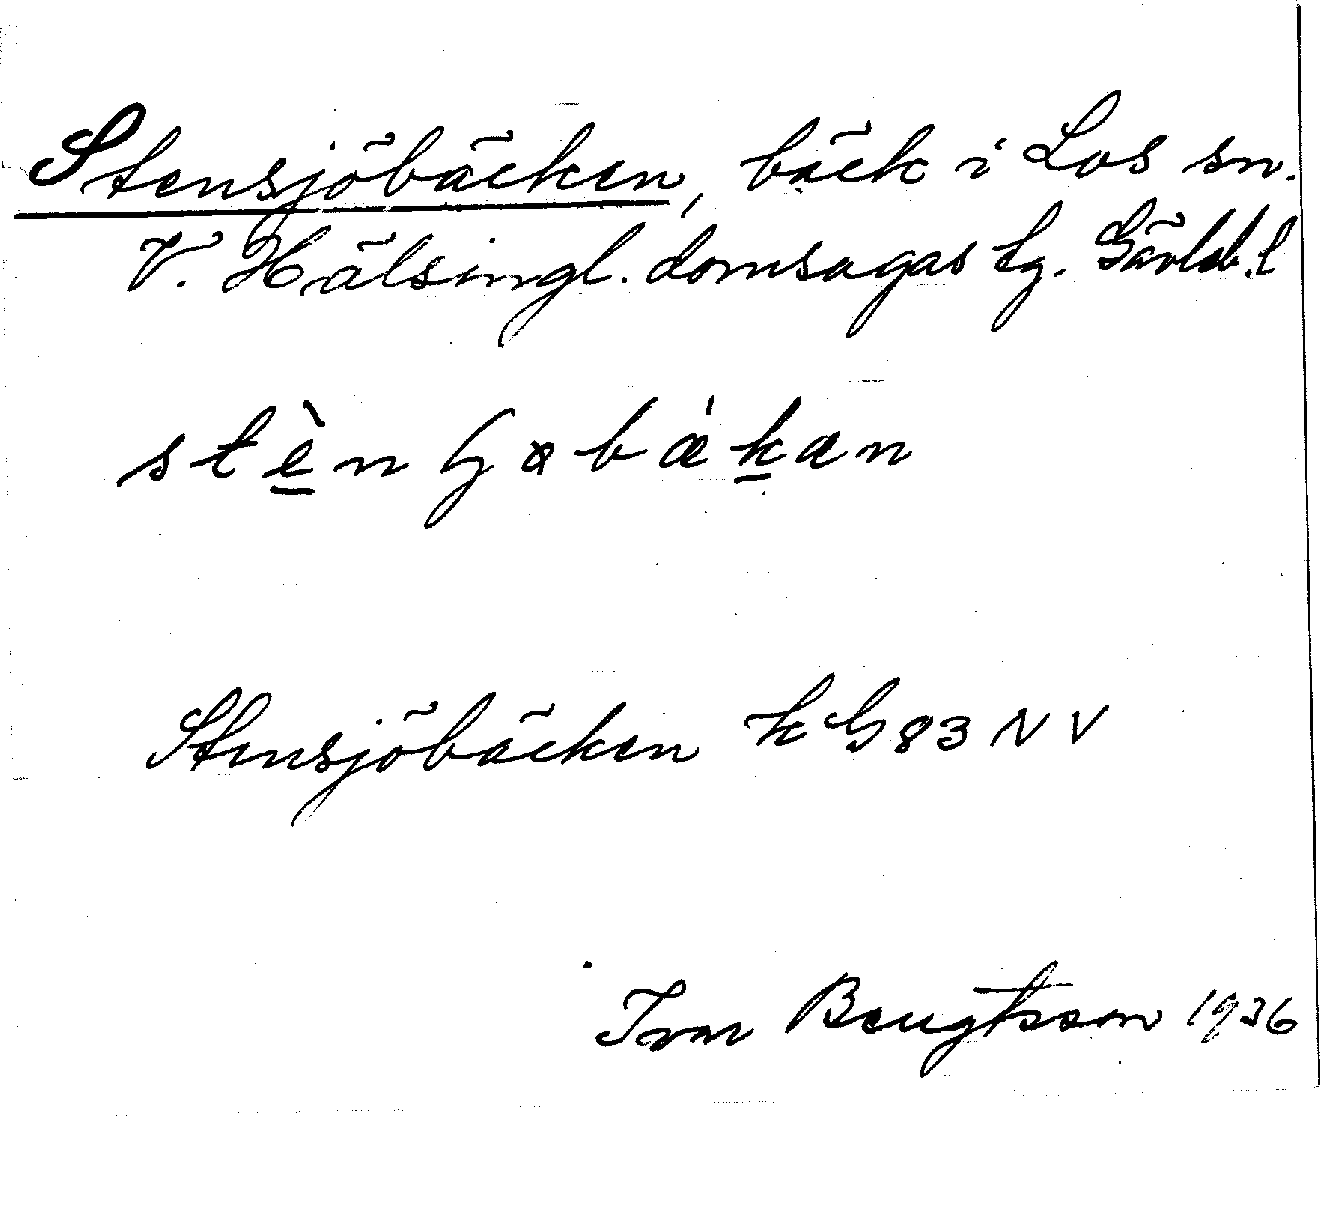 Stensjöbäcken, bäck i Los sn.
V. Hälsingl. domsagas tg. Gävleb. l
Stensjöbäcken k G 83 NV
Ivar Bengtsson 1936